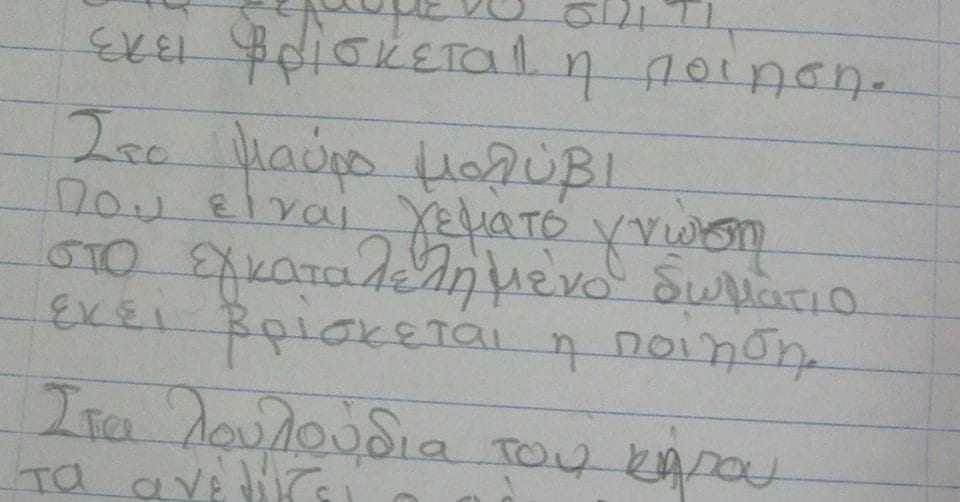 σπίτι
εκεί βρίσκεται η ποίηση.
Στο μαύρο μολύβι
που είναι γεμάτο γνώση
στο εγκαταλελημένο δωμάτιο
εκεί βρίσκεται η ποίηση.
Στα λουλούδια του κήπου
τα